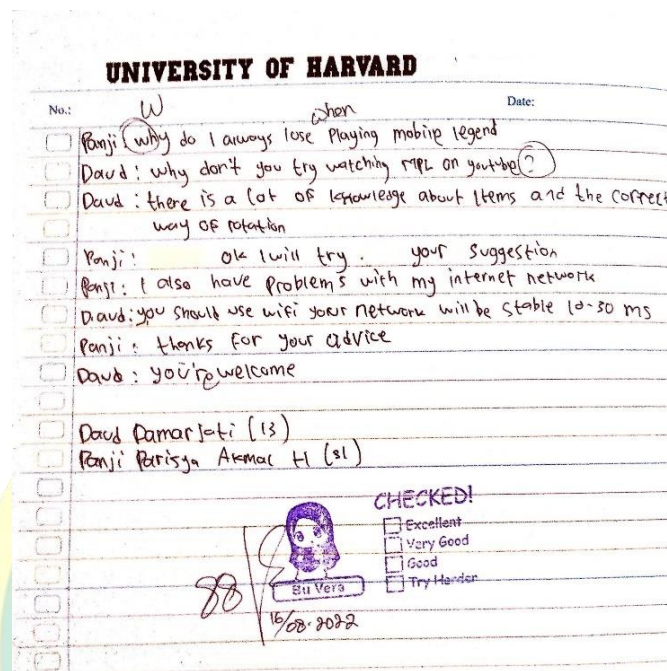 UNIVERSITY OF HARVARD
No.: W when Date:
Panji : why do I always lose Playing mobile legend
Daud : why don't you try watching MPL on youtube ?
Daud : there is a lot of knowledge about Items and the correct
way of rotation
Panji : ok I will try . your suggestion
Panji : I also have problems with my internet network
Daud : you should use wifi your network will be stable 10-30 ms
Panji : thanks for your advice
Daud : you're welcome
Daud Damarjati (13)
Panji Parisya Akmal H (31)
CHECKED!
Excellent
Very Good
Good
Try Harder
Bu Vera
88
16/08-2022